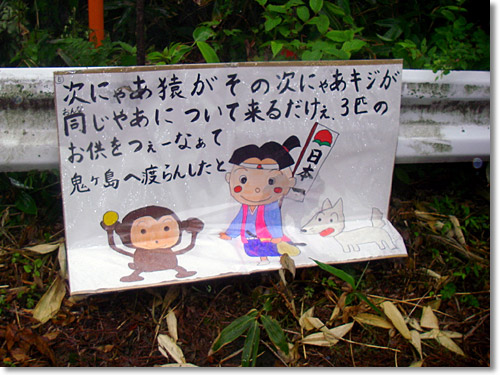 次にゃあ猿がその次にゃあキジが
同じやあについて来るだけぇ、3匹の
お供をつぇーなぁて
鬼ヶ島へ渡らんしたと
日本一